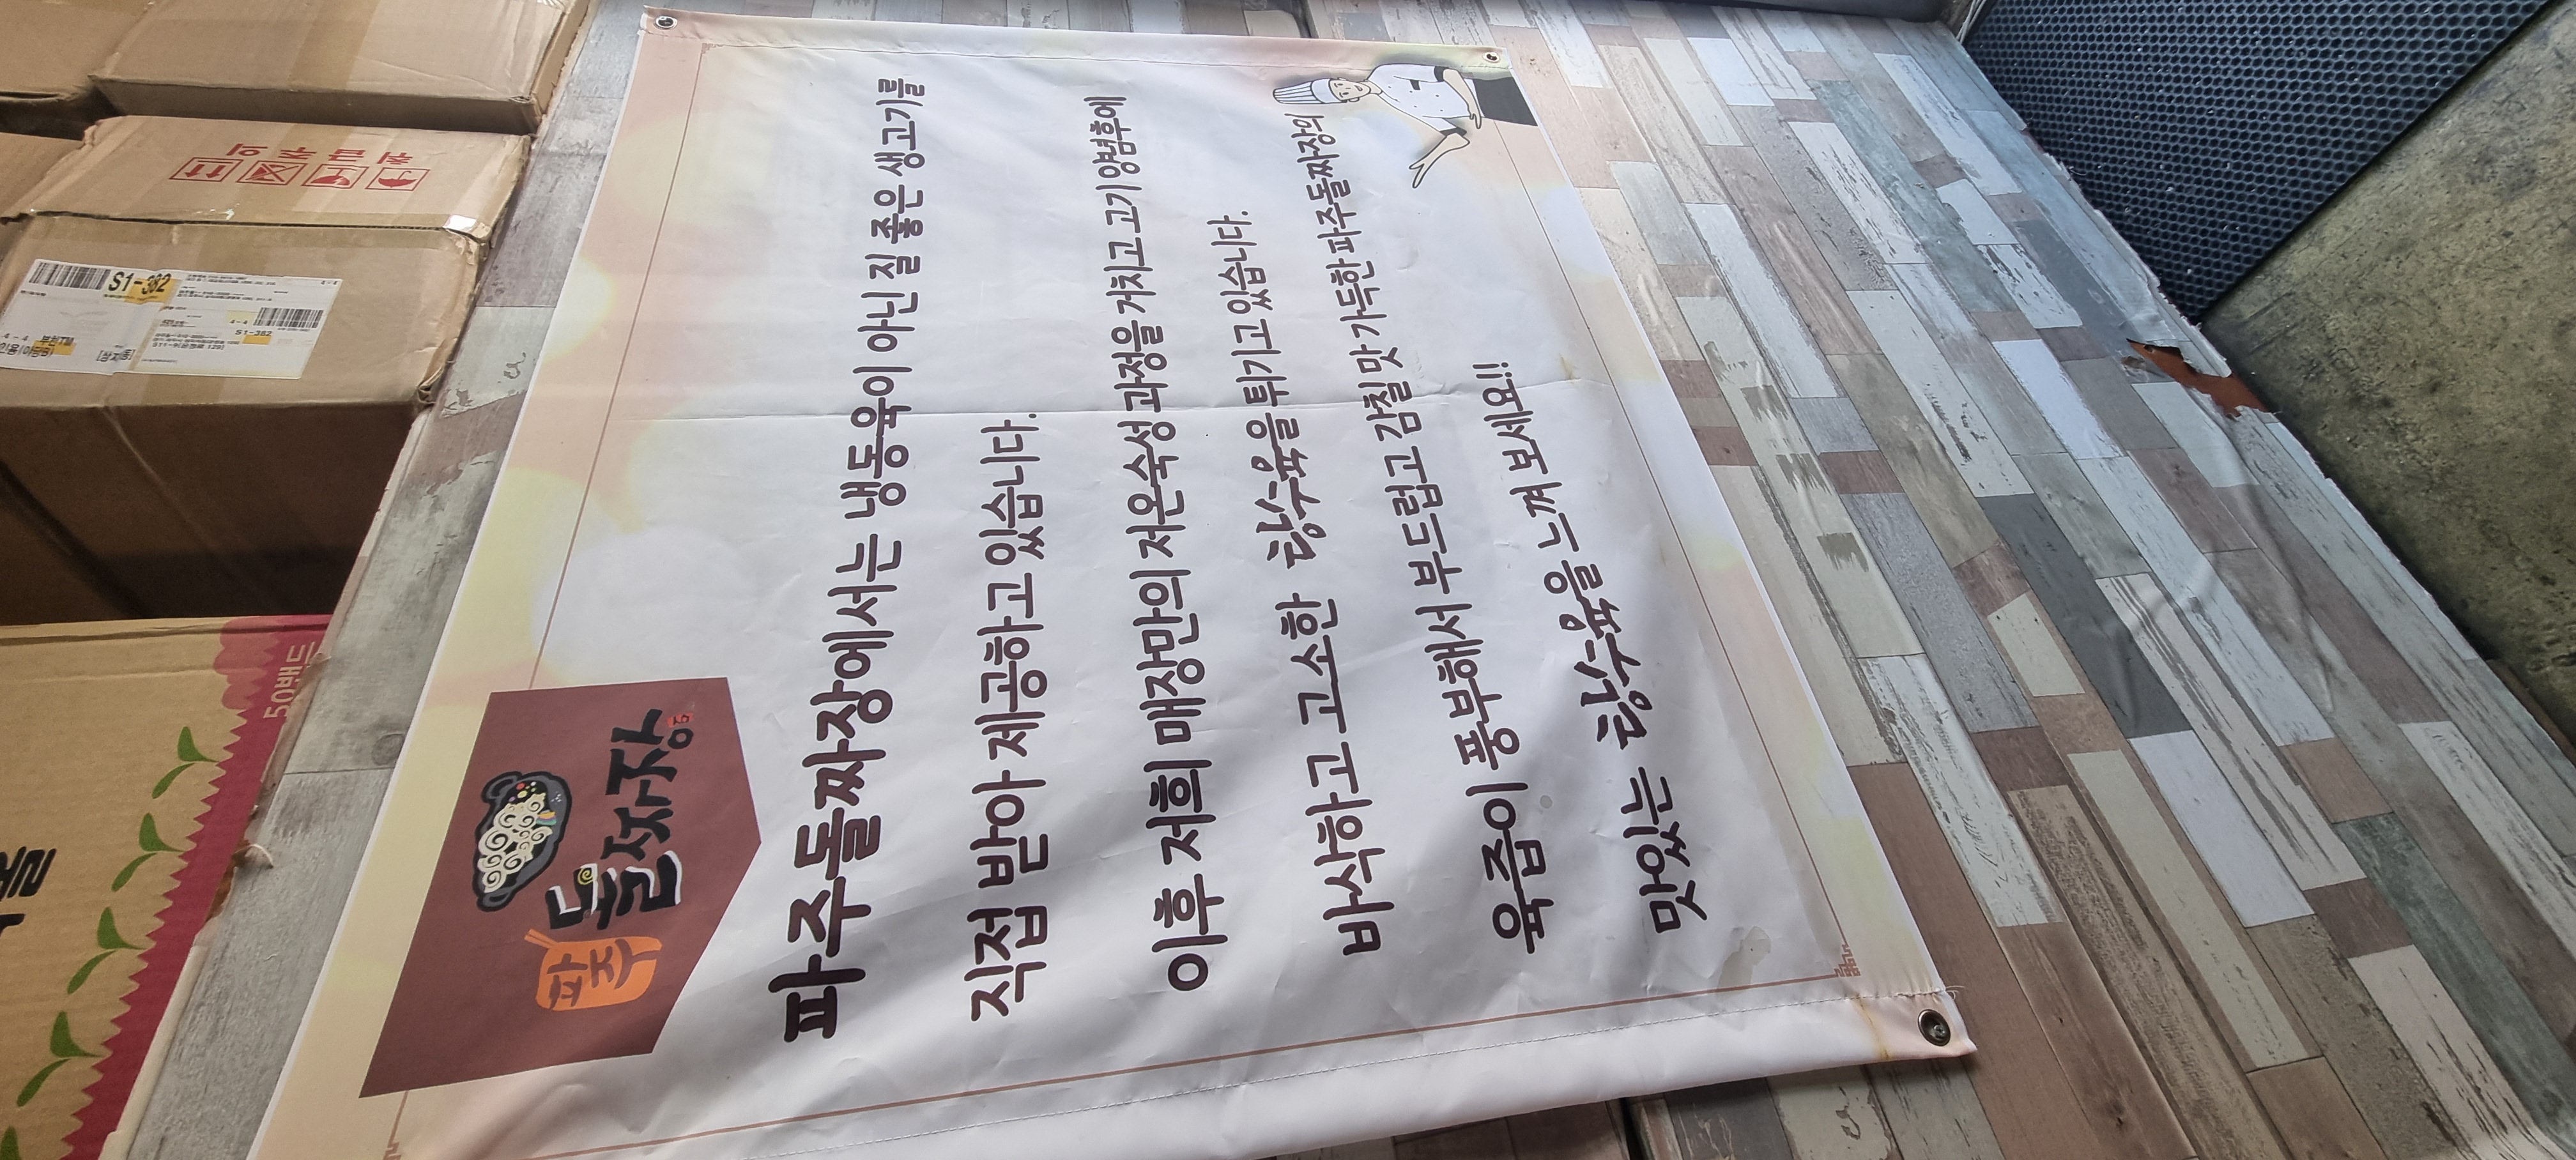 파주
돌짜장
파주돌짜장에서는 냉동육이 아닌 질 좋은 생고기를
직접 받아 제공하고 있습니다.
이후 저희 매장만의 저온숙성 과정을 거치고 고기 양념후에
바삭하고 고소한 탕수육을 튀기고 있습니다.
육즙이 풍부해서 부드럽고 감칠 맛 가득한 파주돌짜장의
맛있는 탕수육을 느껴 보세요!!
S1-382
4-4
S1-382
50밴드